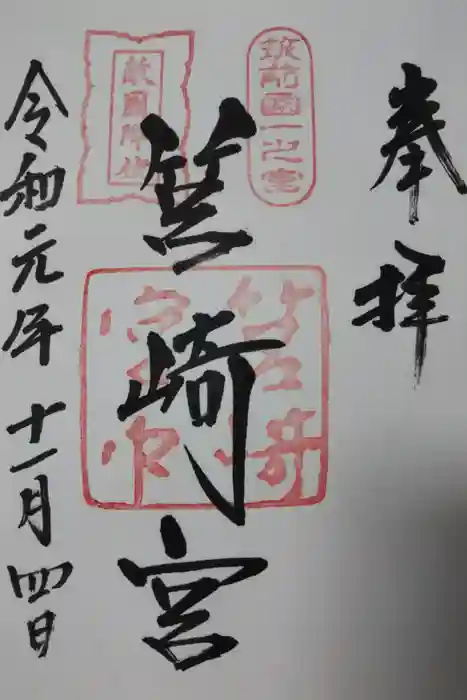 奉拝
筑前國一之宮
敵國降伏
筥崎宮
筥崎宮印
令和元年十一月四日